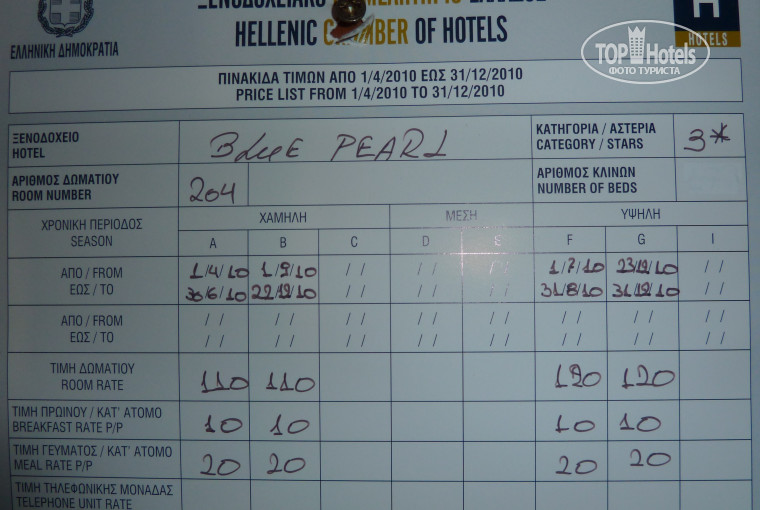 ΕΛΛΗΝΙΚΗ ΔΗΜΟΚΡΑΤΙΑ
HELLENIC CHAMBER OF HOTELS
H
HOTELS
TOPHotels
ФОТО ТУРИСТА
ΠΙΝΑΚΙΔΑ ΤΙΜΩΝ ΑΠΟ 1/4/2010 ΕΩΣ 31/12/2010
PRICE LIST FROM 1/4/2010 TO 31/12/2010
ΞΕΝΟΔΟΧΕΙΟ
HOTEL
BLUE PEARL
ΚΑΤΗΓΟΡΙΑ / ΑΣΤΕΡΙΑ
CATEGORY / STARS
3*
ΑΡΙΘΜΟΣ ΔΩΜΑΤΙΟΥ
ROOM NUMBER
204
ΑΡΙΘΜΟΣ ΚΛΙΝΩΝ
NUMBER OF BEDS
ΧΡΟΝΙΚΗ ΠΕΡΙΟΔΟΣ
SEASON
ΧΑΜΗΛΗ ΜΕΣΗ ΥΨΗΛΗ
A B C D E F G I
ΑΠΟ / FROM 1/4/10 1/9/10 / / / / / / 1/7/10 23/12/10 / /
ΕΩΣ / TO 30/6/10 22/12/10 / / / / / / 31/8/10 31/12/10 / /
ΑΠΟ / FROM / / / / / / / / / / / / / / / /
ΕΩΣ / TO / / / / / / / / / / / / / / / /
ΤΙΜΗ ΔΩΜΑΤΙΟΥ
ROOM RATE
110 110 120 120
ΤΙΜΗ ΠΡΩΙΝΟΥ / ΚΑΤ' ΑΤΟΜΟ
BREAKFAST RATE P/P
10 10 10 10
ΤΙΜΗ ΓΕΥΜΑΤΟΣ / ΚΑΤ' ΑΤΟΜΟ
MEAL RATE P/P
20 20 20 20
ΤΙΜΗ ΤΗΛΕΦΩΝΙΚΗΣ ΜΟΝΑΔΑΣ
TELEPHONE UNIT RATE